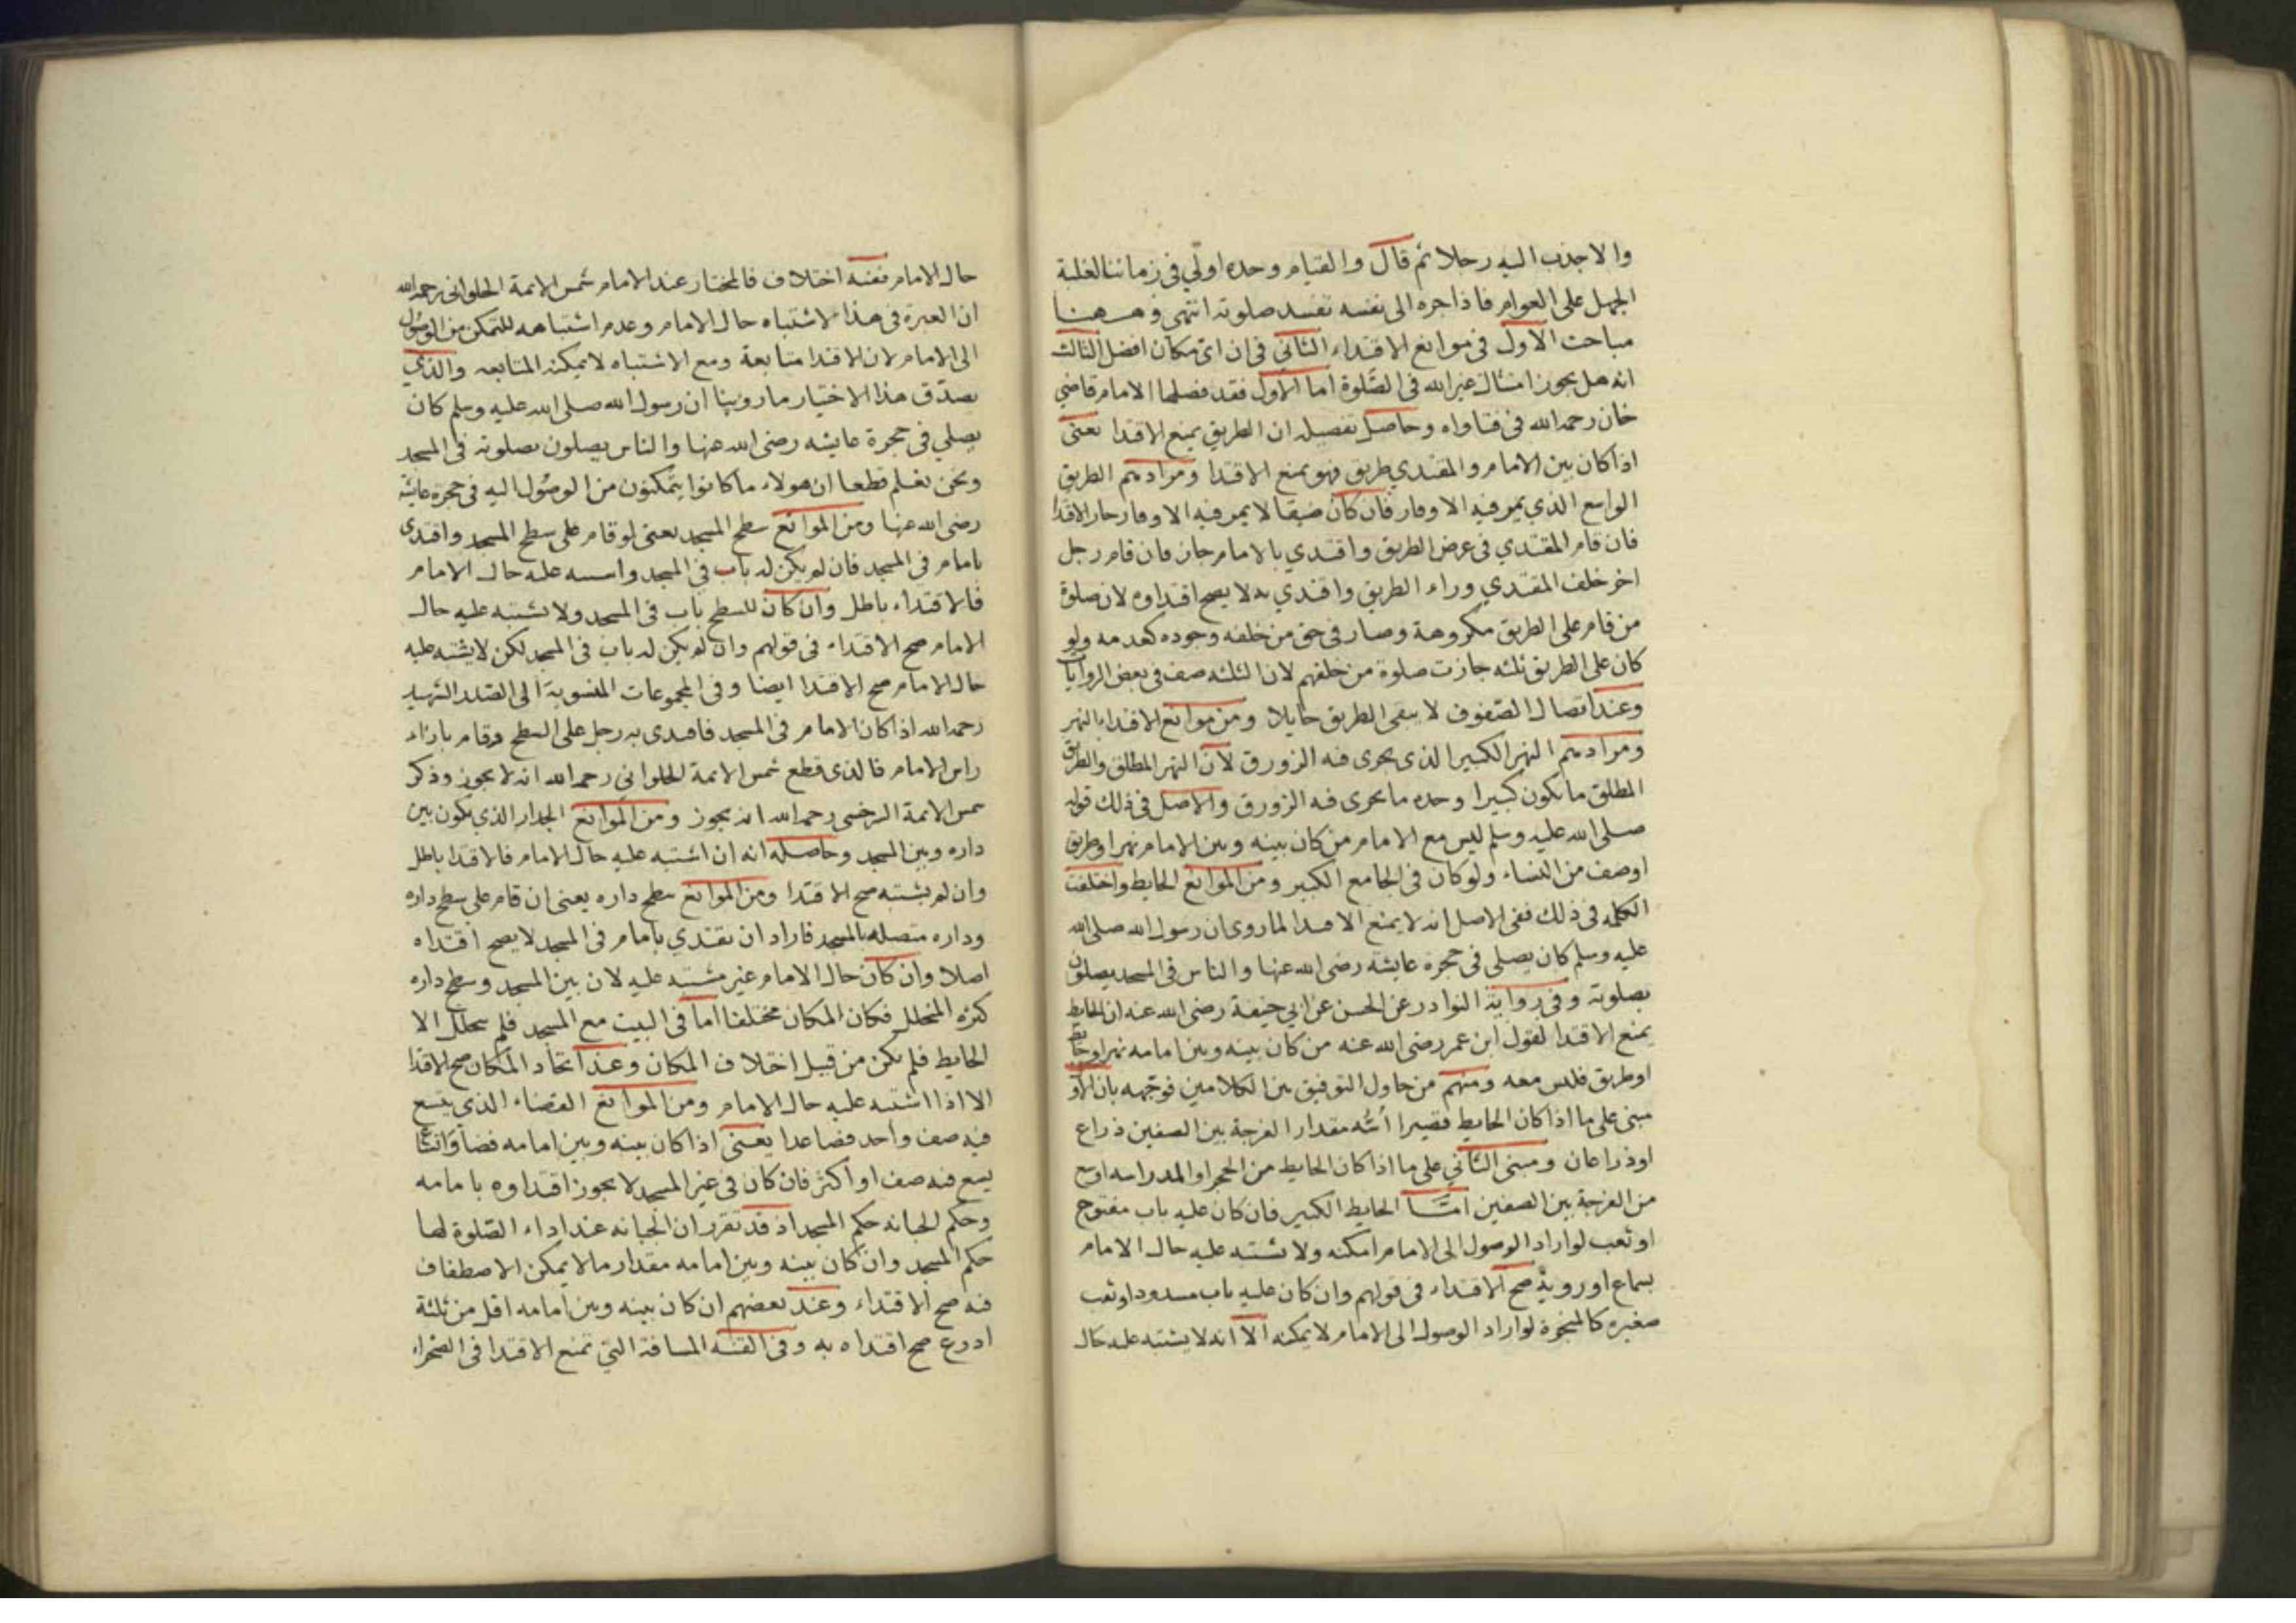 والا جذب اليه رجلا ثم قال والقيام وحده اولي في زماننا لغلبة
الجهل على العوام فاذا جره الى نفسه تفسد صلوته انتهى وههنا
مباحث الاول في موانع الاقتداء الثاني في ان اي مكان افضل الثالث
انه هل يجوز امتثال غير الله في الصلوة اما الاول فقد فصلها الامام قاضي
خان رحمه الله في فتاواه وحاصل تفصيله ان الطريق يمنع الاقتدا يعني
اذا كان بين الامام والمقتدي طريق فهو يمنع الاقتدا ومرادهم الطريق
الواسع الذي يمر فيه الاوقار فان كان ضيقا لا يمر فيه الاوقار جاز الاقتدا
فان قام المقتدي في عرض الطريق واقتدي بالامام جاز فان قام رجل
اخر خلف المقتدي وراء الطريق واقتدي به لا يصح اقتداوه لان صلوة
من قام على الطريق مكروهة وصار في حق من خلفه وجوده كعدمه ولو
كان على الطريق ثلثه جازت صلوة من خلفهم لان الثلثه صف في بعض الروايات
وعند اتصال الصفوف لا يبقى الطريق حايلا ومن موانع الاقتدا النهر
ومرادهم النهر الكبير الذي يجري فيه الزورق لان النهر المطلق والطريق
المطلق ما يكون كبيرا وحده ما يجري فيه الزورق والاصل في ذلك قوله
صلى الله عليه وسلم ليس مع الامام من كان بينه وبين الامام نهر او طريق
او صف من النساء ولو كان في الجامع الكبير ومن الموانع الحايط واختلفت
الكلمه في ذلك ففي الاصل انه لا يمنع الاقتدا لما روي ان رسول الله صلى الله
عليه وسلم كان يصلي في حجرة عايشة رضي الله عنها والناس في المسجد يصلون
بصلوته وفي رواية النوادر عن الحسن عن ابي حنيفة رضي الله عنه ان الحايط
يمنع الاقتدا لقول ابن عمر رضي الله عنه من كان بينه وبين امامه نهر او حايط
او طريق فليس معه ومنهم من حاول التوفيق بين الكلامين فوجهه بان الاول
مبني على ما اذا كان الحايط قصيرا مقدار الفرجة بين الصفين ذراع
او ذراعان ومبنى الثاني على ما اذا كان الحايط من الحجر او المدر اوسع
من الفرجة بين الصفين امّا الحايط الكبير فان كان عليه باب مفتوح
او ثعب لو اراد الوصول الى الامام امكنه ولا يشتبه عليه حال الامام
بسماع او روية صح الاقتداء في قولهم وان كان عليه باب مسدود او ثعب
صغيره كالمنجرة لو اراد الوصول الى الامام لا يمكنه الا انه لا يشتبه عليه حال
حال الامام ففيه اختلاف فالمختار عند الامام شمس الائمة الحلواني رحمه الله
ان العبرة في هذا لاشتباه حال الامام وعدم اشتباهه للتمكن من الوصول
الى الامام لان الاقتدا متابعة ومع الاشتباه لا يمكنه المتابعه والذي
يصدق هذا الاختيار ما روينا ان رسول الله صلى الله عليه وسلم كان
يصلي في حجرة عايشه رضي الله عنها والناس يصلون بصلوته في المسجد
ونحن نعلم قطعا ان هولاء ما كانوا يتمكنون من الوصول اليه في حجرة عايشة
رضي الله عنها ومن الموانع سطح المسجد يعني لو قام على سطح المسجد واقتدى
بامام في المسجد فان لم يكن له باب في المسجد واشتبه عليه حال الامام
فالاقتداء باطل وان كان للسطح باب في المسجد ولا تشتبه عليه حال
الامام صح الاقتداء في قولهم وان لم يكن له باب في المسجد لكن لا يشتبه عليه
حال الامام صح الاقتدا ايضا وفي المجموعات المنسوبة الى الصدر الشهيد
رحمه الله اذا كان الامام في المسجد فاقتدى به رجل على السطح وقام بازاء
راس الامام فالذي قطع شمس الائمة الحلواني رحمه الله انه لا يجوز وذكر
شمس الائمة السرخسي رحمه الله انه يجوز ومن الموانع الجدار الذي يكون بين
داره وبين المسجد وحاصله انه ان اشتبه عليه حال الامام فالاقتدا باطل
وان لم يشتبه صح الاقتدا ومن الموانع سطح داره يعني ان قام على سطح داره
وداره متصله بالمسجد فاراد ان يقتدي بامام في المسجد لا يصح اقتداه
اصلا وان كان حال الامام غير مشتبه عليه لان بين المسجد وسطح داره
كثره التخلل فكان المكان مختلفا اما في البيت مع المسجد فلم يتخلل الا
الحايط فلم يكن من قبيل اختلاف المكان وعند اتحاد المكان صح الاقتدا
الا اذا اشتبه عليه حال الامام ومن الموانع الفضاء الذي يتسع
فيه صف واحد فصاعدا يعني اذا كان بينه وبين امامه فضا
يسع فيه صف او اكثر فان كان في غير المسجد لا يجوز اقتداوه بامامه
وحكم الجبانه حكم المسجد اذ قد تقرر ان الجبانه عند اداء الصلوة لها
حكم المسجد وان كان بينه وبين امامه مقدار ما لا يمكن الاصطفاف
فيه صح الاقتداء وعند بعضهم ان كان بينه وبين امامه اقل من ثلثة
اذرع صح اقتداه به وفي القنية المسافة التي تمنع الاقتدا في الصحراء